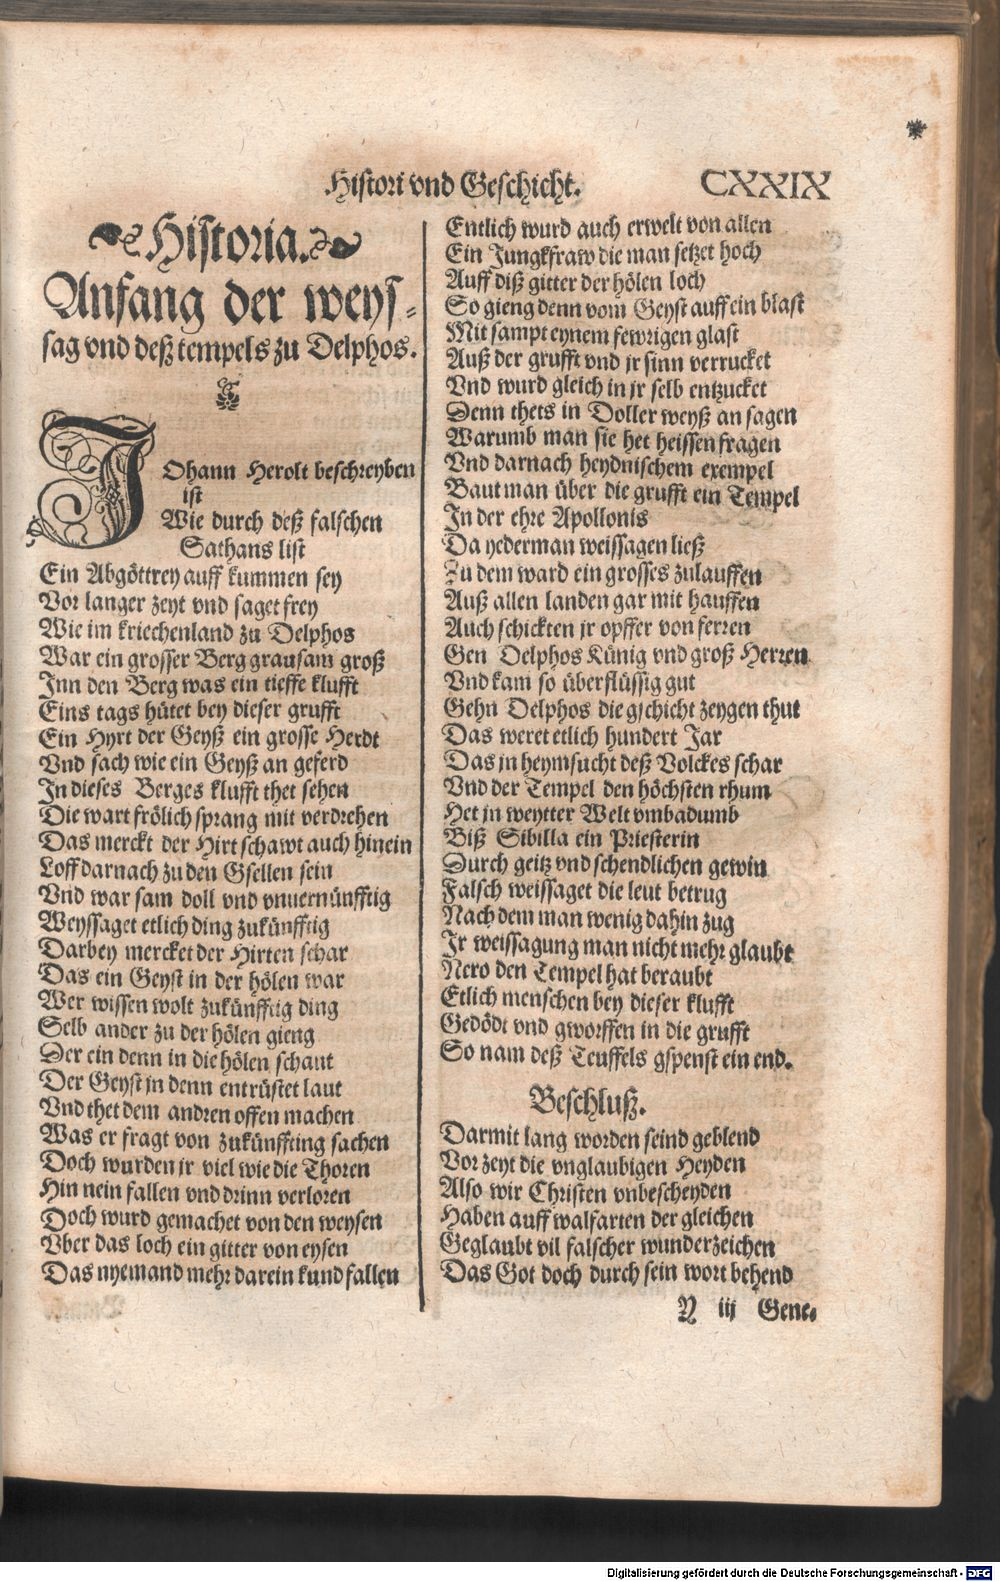 Histori vnd Geschicht. CXXIX
Historia.
Anfang der weys-
sag vnd deß tempels zu Delphos.
JOhann Herolt beschreyben
ist
Wie durch deß falschen
Sathans list
Ein Abgöttrey auff kummen sey
Vor langer zeyt vnd saget frey
Wie im kriechenland zu Delphos
War ein grosser Berg grausam groß
Inn den Berg was ein tieffe klufft
Eins tags hütet bey dieser grufft
Ein Hyrt der Geyß ein grosse Herdt
Vnd sach wie ein Geyß an geferd
In dieses Berges klufft thet sehen
Die wart frölich sprang mit verdrehen
Das merckt der Hirt schawt auch hinein
Loff darnach zu den Gsellen sein
Vnd war sam doll vnd vnuernünfftig
Weyssaget etlich ding zukünfftig
Darbey mercket der Hirten schar
Das ein Geyst in der hölen war
Wer wissen wolt zukünfftig ding
Selb ander zu der hölen gieng
Der ein denn in die hölen schaut
Der Geyst jn denn entrüstet laut
Vnd thet dem andren offen machen
Was er fragt von zukünffting sachen
Doch wurden jr viel wie die Thoren
Hin nein fallen vnd drinn verloren
Doch wurd gemachet von den weysen
Vber das loch ein gitter von eysen
Das nyemand mehr darein kund fallen
Entlich wurd auch erwelt von allen
Ein Jungkfraw die man setzet hoch
Auff diß gitter der hölen loch
So gieng denn vom Geyst auff ein blast
Mit sampt eynem fewrigen glast
Auß der grufft vnd jr sinn verrucket
Vnd wurd gleich in jr selb entzucket
Denn thets in Doller weyß an sagen
Warumb man sie het heissen fragen
Vnd darnach heydnischem exempel
Baut man über die grufft ein Tempel
In der ehre Apollonis
Da yederman weissagen ließ
Zu dem ward ein grosses zulauffen
Auß allen landen gar mit hauffen
Auch schickten jr opffer von ferren
Gen Delphos Künig vnd groß Herren
Vnd kam so überflüssig gut
Gehn Delphos die gschicht zeygen thut
Das weret etlich hundert Jar
Das jn heymsucht deß Volckes schar
Vnd der Tempel den höchsten rhum
Het jn weytter Welt vmbadumb
Biß Sibilla ein Priesterin
Durch geitz vnd schendlichen gewin
Falsch weissaget die leut betrug
Nach dem man wenig dahin zug
Jr weissagung man nicht mehr glaubt
Nero den Tempel hat beraubt
Etlich menschen bey dieser klufft
Gedödt vnd gworffen in die grufft
So nam deß Teuffels gspenst ein end.
Beschluß.
Darmit lang worden seind geblend
Vor zeyt die vnglaubigen Heyden
Also wir Christen vnbescheyden
Haben auff walfarten der gleichen
Geglaubt vil falscher wunderzeichen
Das Got doch durch sein wort behend
N iij Gene-
Digitalisierung gefördert durch die Deutsche Forschungsgemeinschaft - DFG